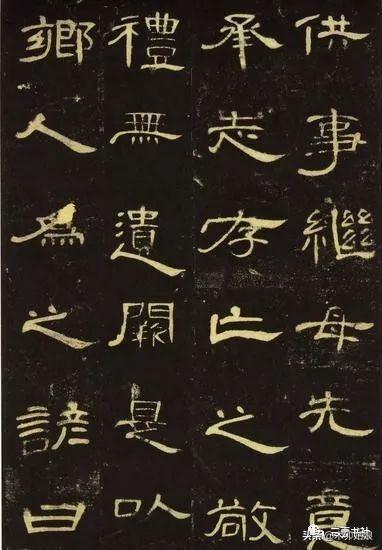 供事繼母先意
承志存亡之敬
禮無遺闕是以
鄉人為之諺曰